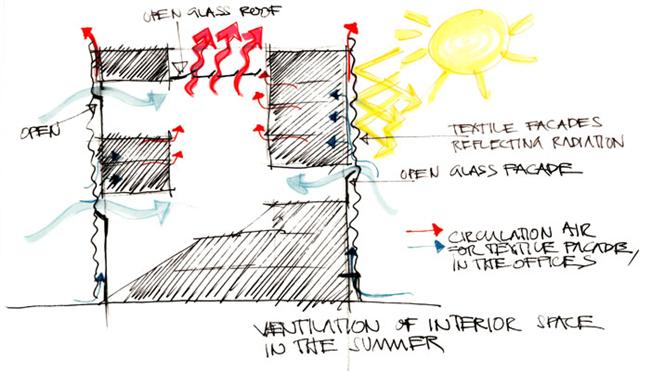 OPEN GLASS ROOF
OPEN
TEXTILE FACADES
REFLECTING RADIATION
OPEN GLASS FACADE
CIRCULATION AIR
FOR TEXTILE FACADE,
IN THE OFFICES
VENTILATION OF INTERIOR SPACE
IN THE SUMMER